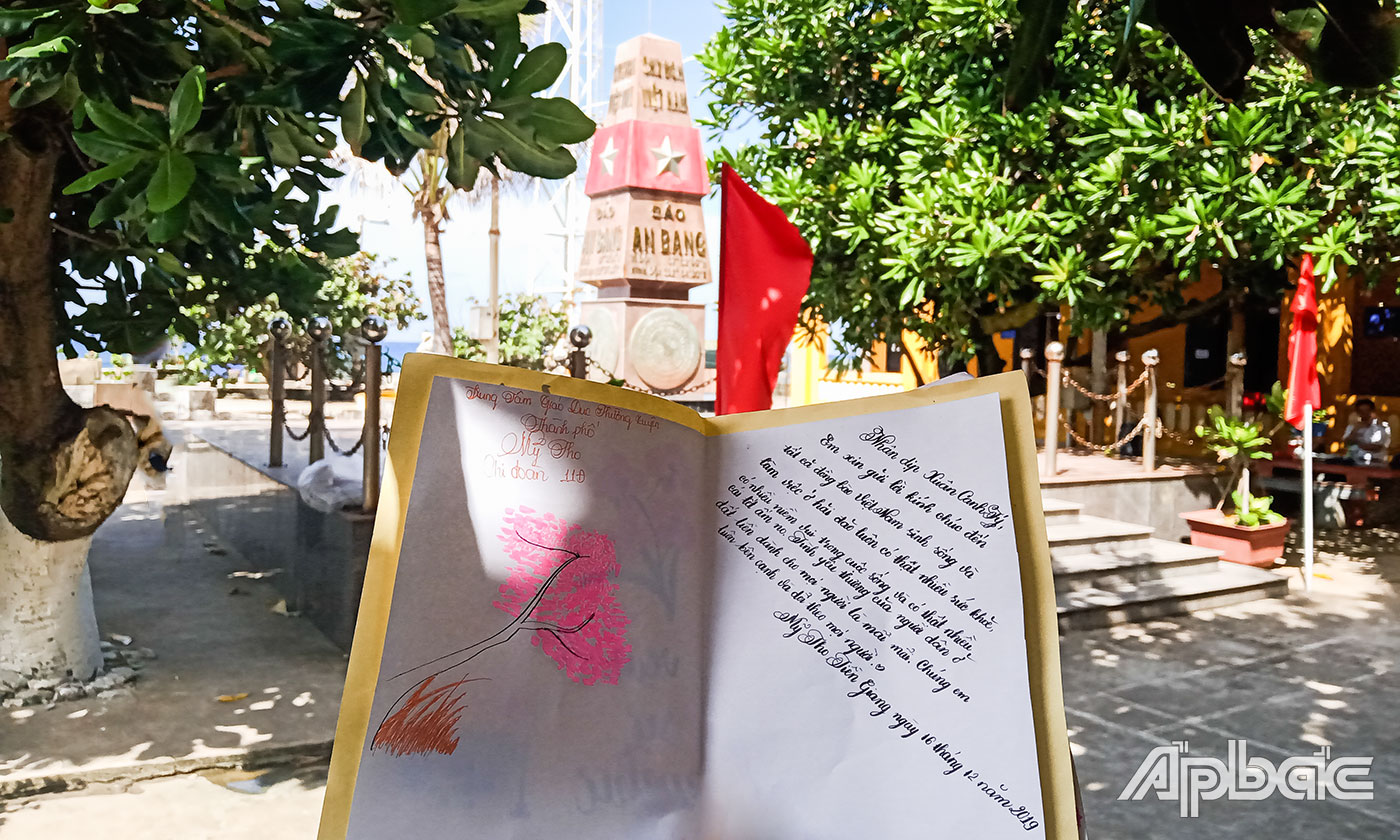 CHỦ QUYỀN
VIỆT NAM
ĐẢO
AN BANG
ĐẢO
Trung Tâm Giáo Dục Thường Xuyên
Thành phố
Mỹ Tho
Chi đoàn 11Đ
Nhân dịp Xuân Canh Tý,
Em xin gửi lời kính chúc đến
tất cả đồng bào Việt Nam sinh sống và
làm việc ở hải đảo luôn có thật nhiều sức khỏe,
có nhiều niềm vui trong cuộc sống và có thật nhiều
cái tết ấm no. Tình yêu thương của người dân ở
đất liền dành cho mọi người là mãi mãi. Chúng em
luôn bên cạnh và dõi theo mọi người.
Mỹ Tho Tiền Giang ngày 16 tháng 12 năm 2019
Apbắc